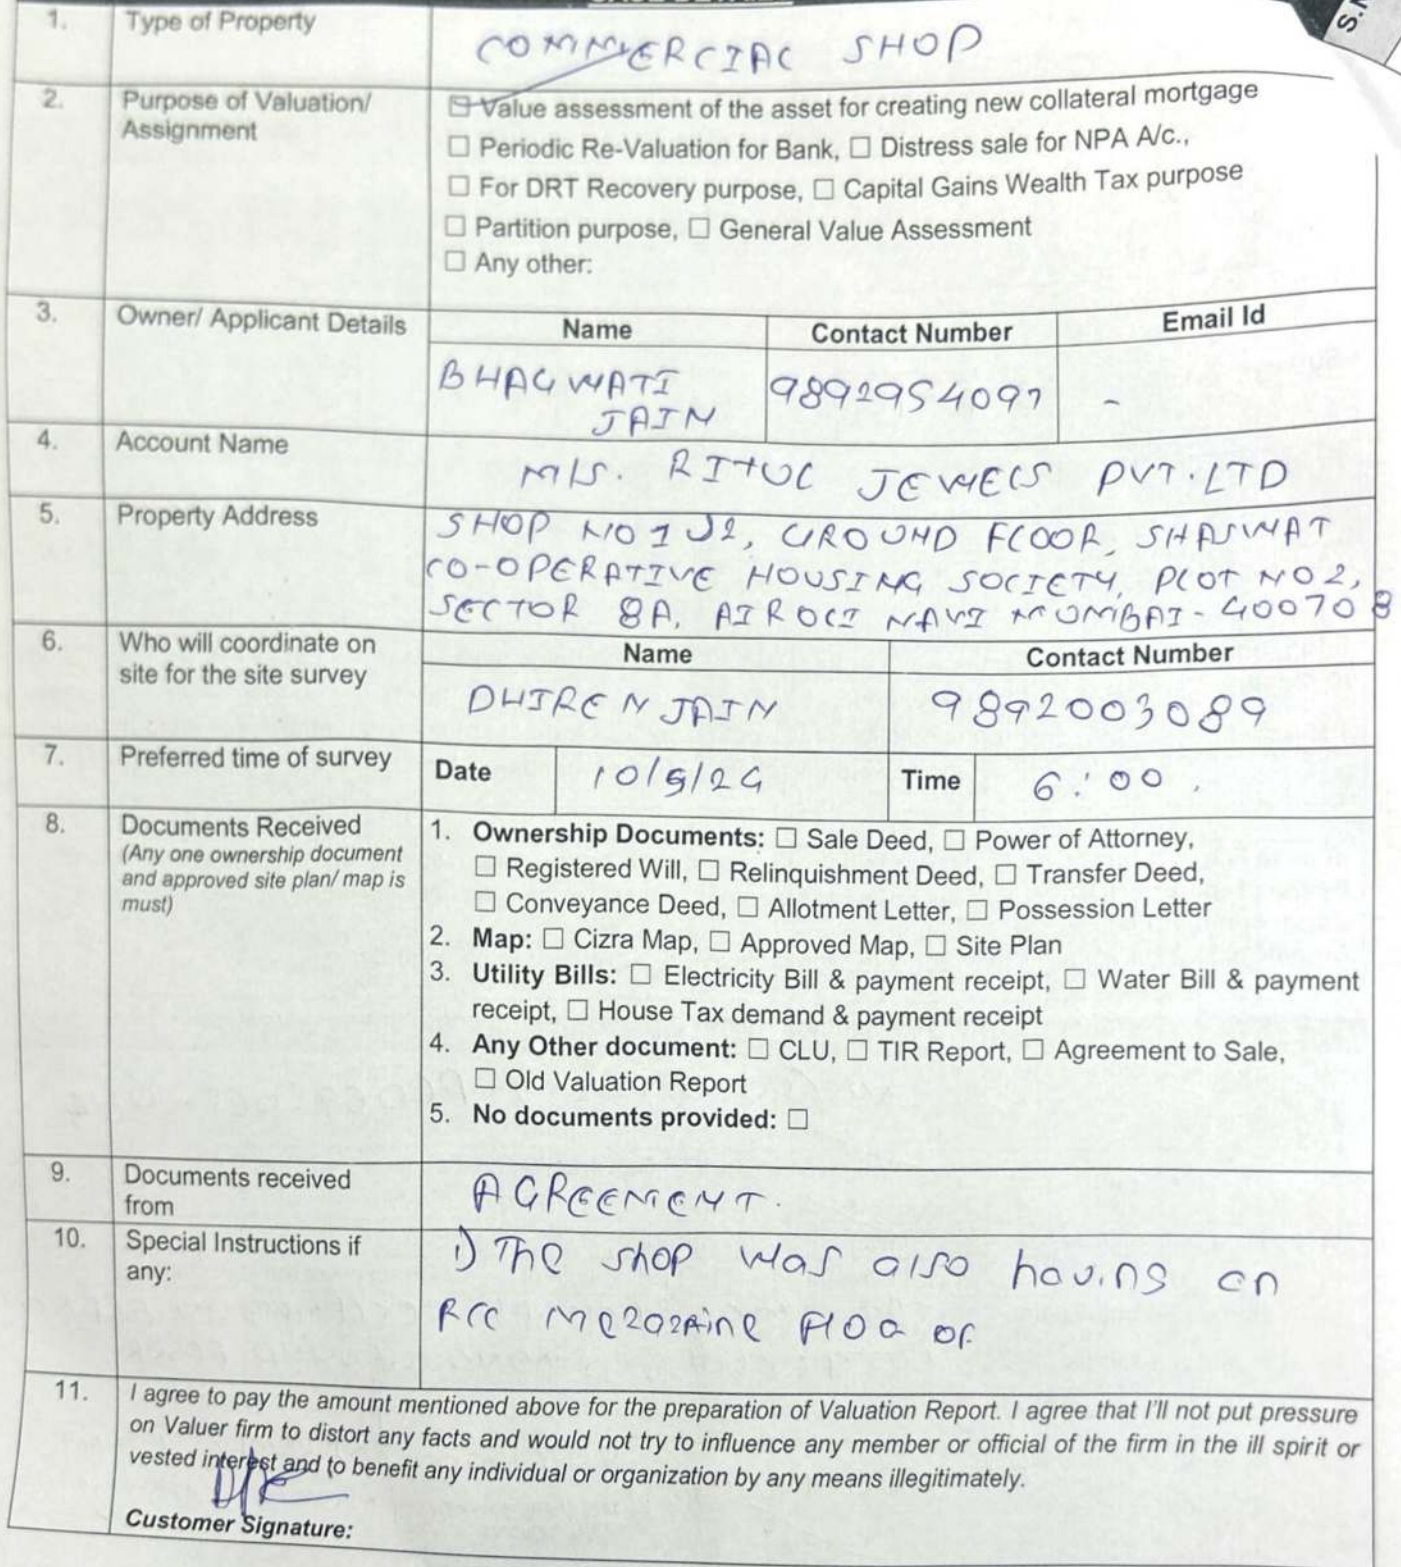 S.N
1. Type of Property COMMERCIAL SHOP
2. Purpose of Valuation/
Assignment
☑ Value assessment of the asset for creating new collateral mortgage
☐ Periodic Re-Valuation for Bank, ☐ Distress sale for NPA A/c.,
☐ For DRT Recovery purpose, ☐ Capital Gains Wealth Tax purpose
☐ Partition purpose, ☐ General Value Assessment
☐ Any other:
3. Owner/ Applicant Details
Name Contact Number Email Id
BHAGWATI 9892954097 -
JAIN
4. Account Name M/S. RITUL JEWELS PVT.LTD
5. Property Address
SHOP NO 1 GROUND FLOOR, SHASWAT
CO-OPERATIVE HOUSING SOCIETY, PLOT NO 2,
SECTOR 8A, AIROLI NAVI MUMBAI - 400708
6. Who will coordinate on
site for the site survey
Name Contact Number
DHIREN JAIN 9892003089
7. Preferred time of survey Date 10/9/24 Time 6:00
8. Documents Received
(Any one ownership document
and approved site plan/ map is
must)
1. Ownership Documents: ☐ Sale Deed, ☐ Power of Attorney,
☐ Registered Will, ☐ Relinquishment Deed, ☐ Transfer Deed,
☐ Conveyance Deed, ☐ Allotment Letter, ☐ Possession Letter
2. Map: ☐ Cizra Map, ☐ Approved Map, ☐ Site Plan
3. Utility Bills: ☐ Electricity Bill & payment receipt, ☐ Water Bill & payment
receipt, ☐ House Tax demand & payment receipt
4. Any Other document: ☐ CLU, ☐ TIR Report, ☐ Agreement to Sale,
☐ Old Valuation Report
5. No documents provided: ☐
9. Documents received
from
AGREEMENT.
10. Special Instructions if
any:
1) The shop was also having an
RCC Mezozaine Floo of
11. I agree to pay the amount mentioned above for the preparation of Valuation Report. I agree that I'll not put pressure
on Valuer firm to distort any facts and would not try to influence any member or official of the firm in the ill spirit or
vested interest and to benefit any individual or organization by any means illegitimately.
Customer Signature: